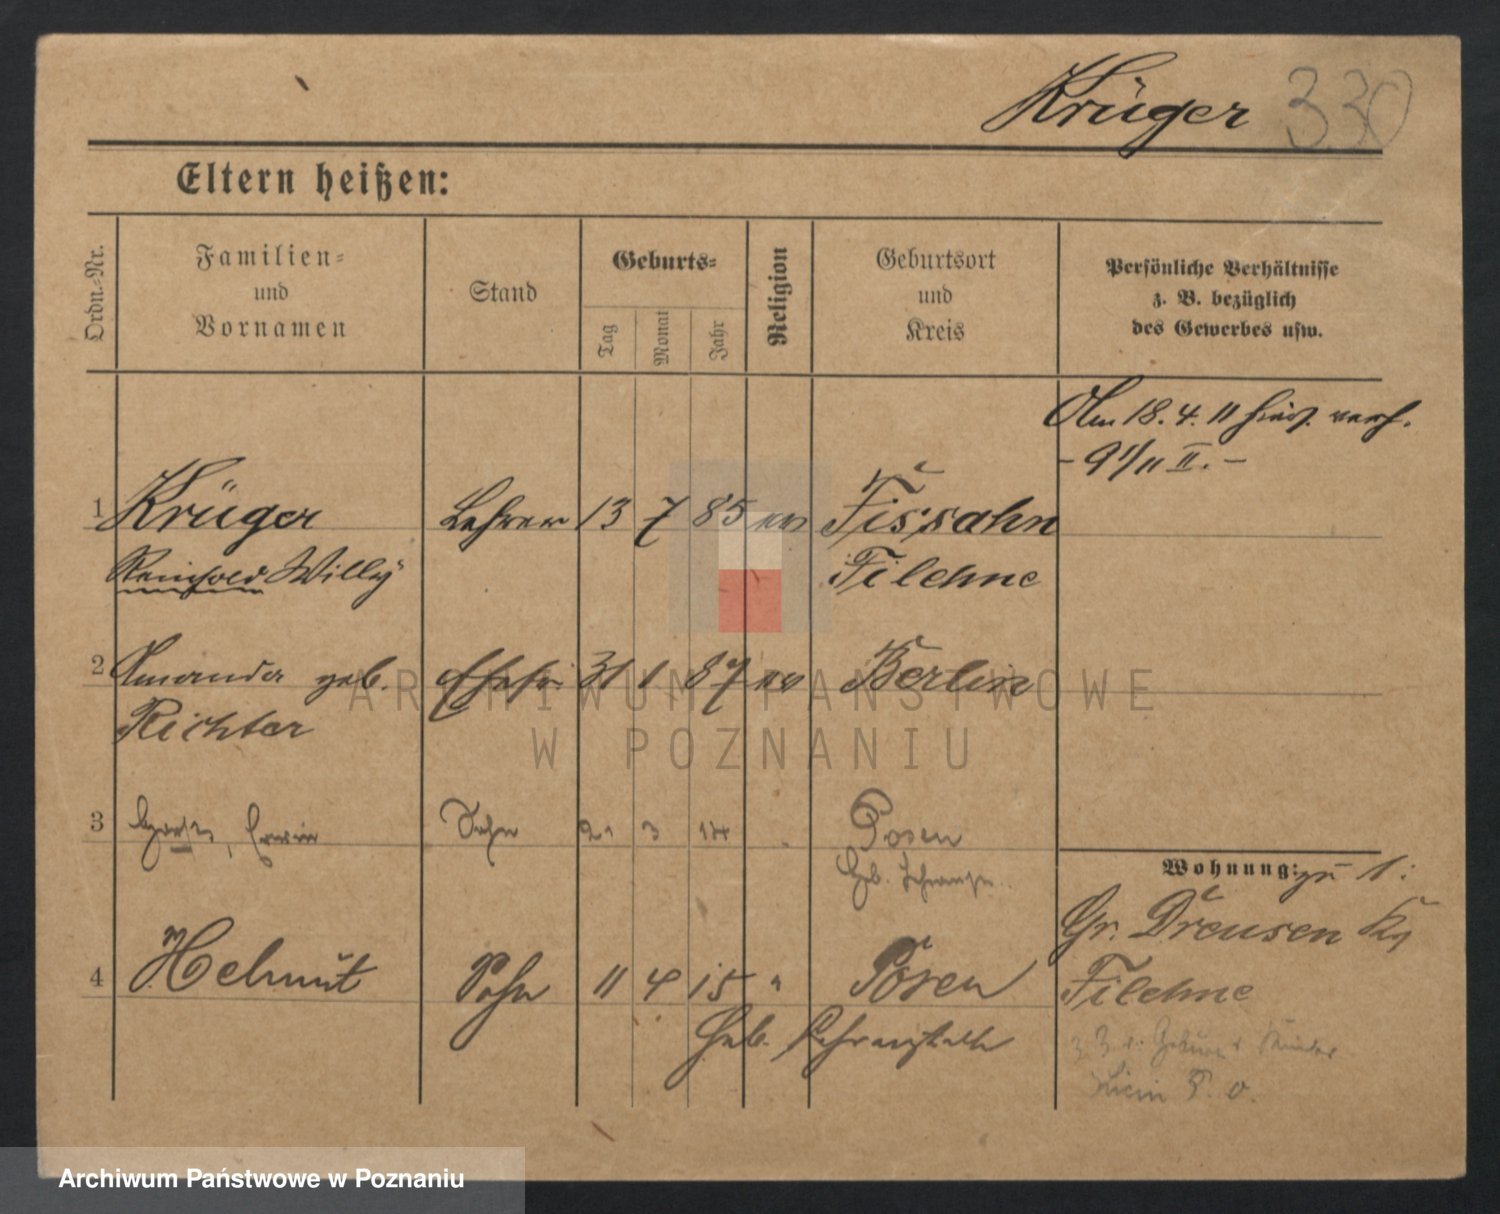 Krüger 330
Eltern heißen:
Ordn.-Nr.
Familien-
und
Vornamen
Stand
Geburts-
Tag
Monat
Jahr
Religion
Geburtsort
und
Kreis
Persönliche Verhältnisse
z. B. bezüglich
des Gewerbes usw.
Am 18. 4. 11 verh.
- 91/11 II. -
1 Krüger Lehrer 13 7 85 ev Fissahn
Reinhold Willy Filehne
2 Amanda geb. Ehefr 31 1 87 ev Berlin
Richter
3 Erwin Sohn 21 3 14 Posen
Heb.
Wohnung: zu 1:
Gr. Dreusen Ks
4 Helmut Sohn 11 4 15 " Posen
Filehne
Heb. Lehranstalt
ARCHIWUM PAŃSTWOWE
W POZNANIU
Archiwum Państwowe w Poznaniu